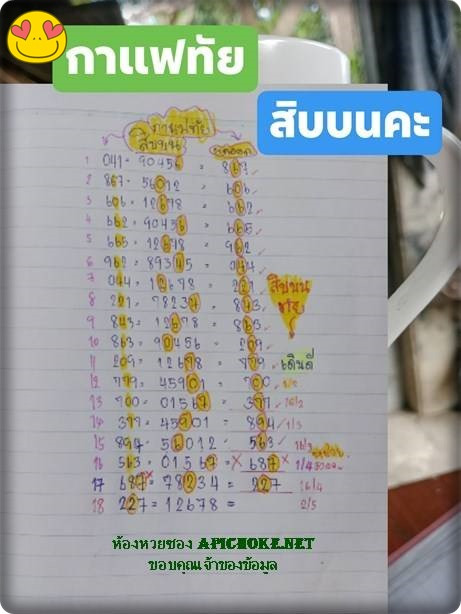 กาแฟทัย
สิบบนคะ
กาแฟทัย
สิบบน
1 041 = 90456 = 867
2 867 = 56012 = 606
3 606 = 12678 = 662
4 662 = 90456 = 665
5 665 = 12678 = 962
6 962 = 89345 = 044
7 044 = 12678 = 221
8 221 = 78234 = 843
9 843 = 12678 = 863
10 863 = 90456 = 209
11 209 = 12678 = 779 เดินดี
12 779 = 45901 = 700 1/2
13 700 = 01567 = 377 16/2
14 377 = 45901 = 894 1/3
15 894 = 56012 = 563 16/3
16 563 = 01567 = x 687 x 1/4
17 687 x = 78234 = 227 16/4
18 227 = 12678 = 2/5
สิบบน
ห้องหวยซอง APICHOKE.NET
ขอบคุณเจ้าของข้อมูล